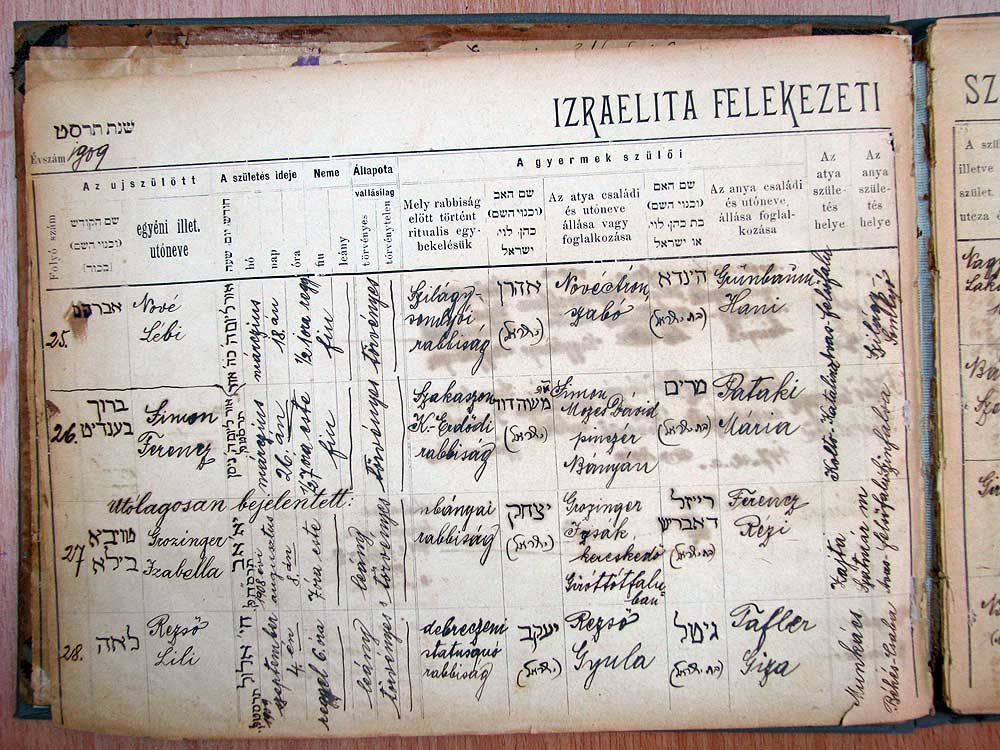 IZRAELITA FELEKEZETI
SZ
שנת תרסט
Évszám 1909
Folyó szám
Az ujszülött
שם הקודש
(ובנוי השם)
(בכור)
egyéni illet.
utóneve
A születés ideje
חודש יום שעה
hó
nap
óra
Neme
fiu
leány
Állapota
vallásilag
törvényes
törvénytelen
A gyermek szülői
Mely rabbiság
előtt történt
rituális egy-
bekelésük
שם האב
(ובנוי השם)
כהן, לוי,
ישראל
Az atya családi
és utóneve
állása vagy
foglalkozása
שם האם
(ובנוי השם)
בת כהן, לוי,
או ישראל
Az anya családi
és utóneve,
állása foglal-
kozása
Az
atya
szüle-
tés
helye
Az
anya
szüle-
tés
helye
A szül
illetve
szület.
utcza
25.
אברהם
Nové
Lébi
március
18 án
fiu
törvényes
Szilágy-
somlyói
rabbiság
אהרן
(ישראל)
Nové Áron,
szabó
הינדא
(בת ישראל)
Grünbaum
Hani
Szilágy-
Somlyó
26.
ברוך
בענדיט
Simon
Ferencz
március
26. án
1/2 7 óra este
fiu
törvényes
Szakaszon
K.-Erdődi
rabbiság
(ישראל)
Simon
Mozes Dávid
pinczér
Bányán
מרים
(בת ישראל)
Pataki
Mária
Utólagosan bejelentett:
27
Grozinger
Izabella
1908 évi
augusztus
8. án
7 óra este
leány
törvényes
nbányai
rabbiság
יצחק
(ישראל)
Grozinger
Izsák
kereskedő
Giróttótfalu
ban
רייזל
דאברש
(בת ישראל)
Ferencz
Rezi
Szatmár m.
28.
לאה
Rezső
Lili
szeptember
4. én
reggel 6. óra
leány
törvényes
debreczeni
statusquo
rabbiság
יעקב
(ישראל)
Rezső
Gyula
גיטל
(בת ישראל)
Tafler
Giza
Munkács
Békés-Csaba